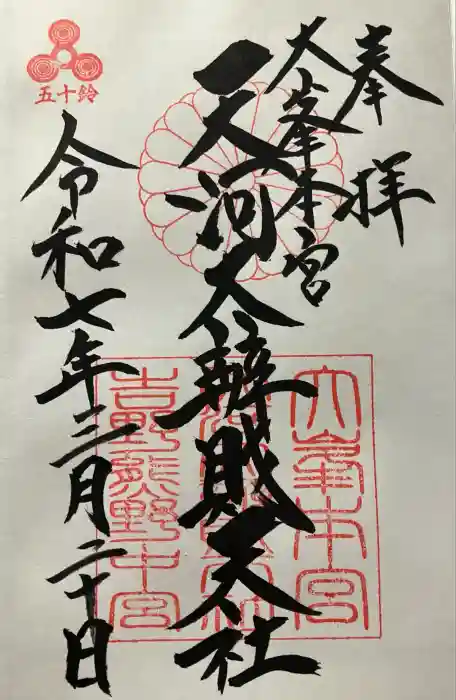 奉拝
大峯本宮
天河大辨財天社
令和七年三月二十日
五十鈴
大峯本宮
吉野熊野中宮